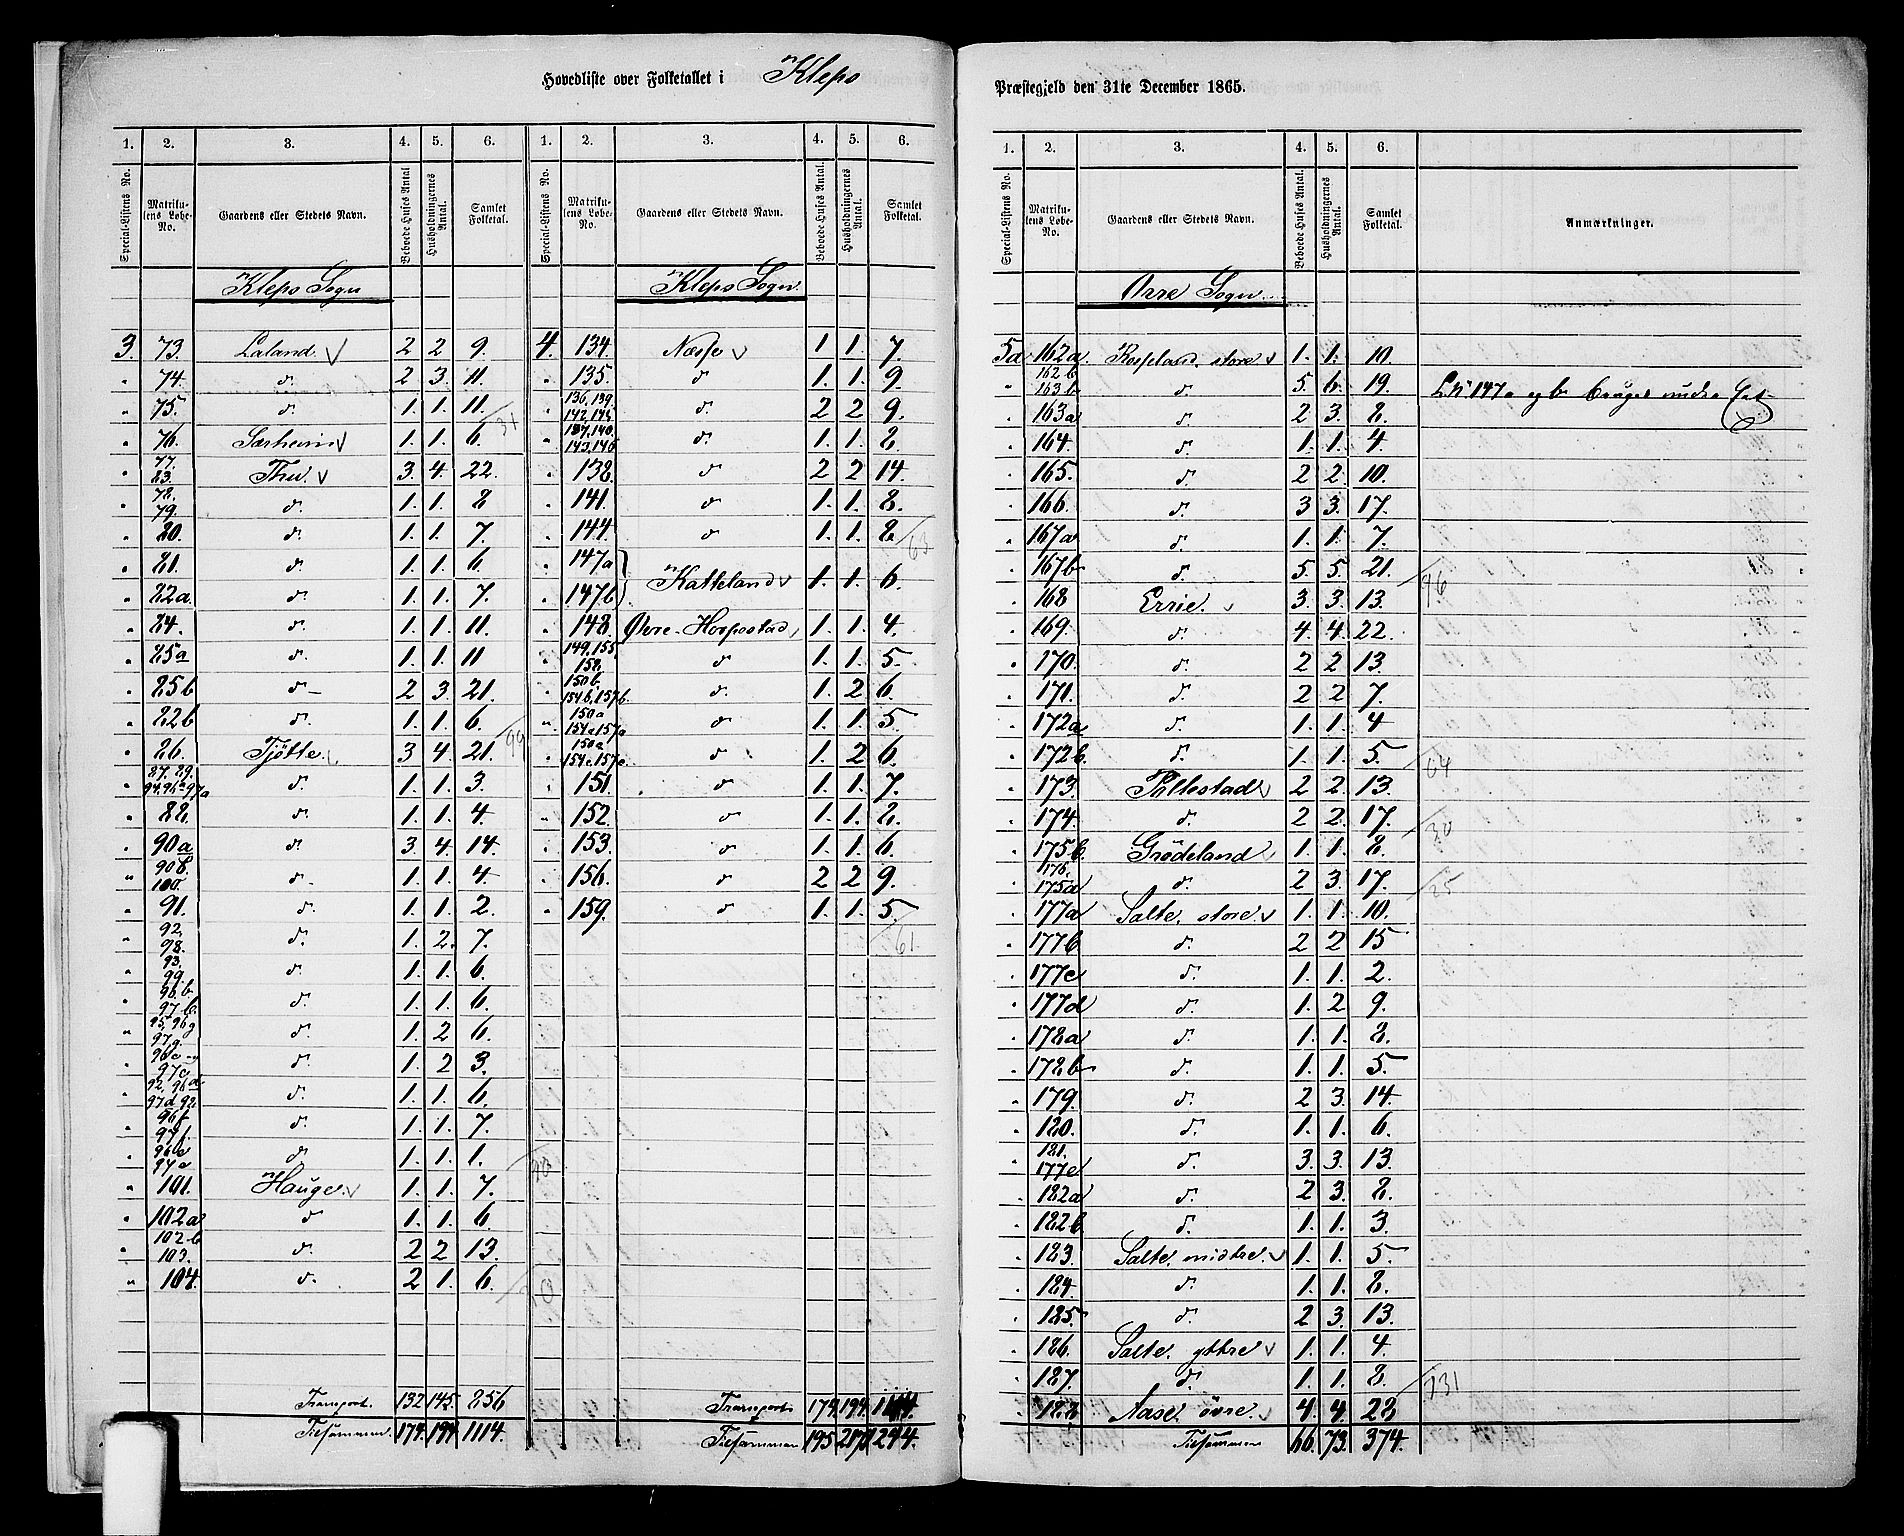 Hovedliste over Folketallet i Klepp
Præstegjeld den 31te December 1865.
1. 2. 3. 4. 5. 6. 1. 2. 3. 4. 5. 6.
Special-Listens No. Matrikulens Løbe-No. Gaardens eller Stedets Navn. Beboede Huses Antal Husholdningernes Antal. Samlet Folketal. Special-Listens No. Matrikulens Løbe-No. Gaardens eller Stedets Navn. Beboede Huses Antal. Husholdningernes Antal. Samlet Folketal.
Klepp Sogn
3. 73. Laland 2 2 9.
" 74. d. 2 3. 11.
" 75. d. 1. 1. 11.
31
" 76. Særheim 1. 1. 6.
" 77. 83. Thu 3. 4. 22.
" 78. 79. d. 1. 1. 8
" 80. d. 1. 1. 7.
" 81. d. 1. 1. 6
" 82a. d. 1. 1. 7.
" 84. d. 1. 1. 11.
" 85a d. 1. 1. 11
" 85b d. 2 3. 21.
" 82b d. 1. 1. 6.
99
" 86. Tjøtte 3 4. 21.
" 87. 89. 94. 96a 97a d. 1. 1. 3.
" 88. d. 1. 1. 4.
" 90a d. 3. 4. 14.
" 90b. 100. d. 1. 1. 4.
" 91. d. 1. 1. 2.
" 92. 98. d. 1. 2. 7.
" 93. 99. d. 1. 1. 6.
" 96.b. 97.b. d. 1. 1. 6.
" 95. 96g 97g. d. 1. 2 6.
" 96c 97c d. 1. 2 3.
" d. 1. 1. 6.
" 96f 97f. d. 1. 1. 7.
" 96e 97e d. 1. 1. 1.
" 101. Hauge 1. 1. 7.
" 102a d. 1. 1. 6.
" 102b 103. d. 2 2 13.
" 104. d. 2 1. 6.
Transport. 132 145. 856
Tilsammen 174. 194. 1114.
Klepp Sogn.
4. 134. Næsse 1. 1. 7.
" 135. d 1. 1. 9.
" 136, 139. 142, 145. d. 2 2 9.
" 137, 140. 143, 146 d. 1. 1. 8.
" 138. d 2 2 14.
" 141. d 1. 1. 8.
" 144. d 1. 1. 8
63
" 147a
147b Katteland 1. 1. 6.
" 148. Øvre-Horpestad 1. 1. 4.
" 149, 155, 158. d 1. 1. 5.
" 150b. 154b, 157b. d. 1. 2 6.
" 150a 154a 157a d 1. 1. 5
" 154c, 157c d 1. 2 6.
" 151. d 1. 1. 7.
" 152. d 1. 1. 8.
" 153. d 1. 1. 6.
" 156. d 2 2 9.
" 159. d 1. 1. 5.
61.
Transport 174. 194. 1114.
Tilsammen 195 217 1244.
1. 2. 3. 4. 5. 6.
Special-Listens No. Matrikulens Løbe-No. Gaardens eller Stedets Navn. Beboede Huses Antal. Husholdningernes Antal. Samlet Folketal. Anmærkninger.
Orre Sogn.
5a 162a. Rossland, store 1. 1. 10.
" 162b 163b d. 5. 6. 19. L.N 147a og b bruges under Eet
" 163a d. 2 3. 8.
" 164. d. 1. 1. 4.
" 165. d. 2 2. 10.
" 166. d. 3 3. 17.
" 167a d. 1. 1. 7.
" 167b d. 5. 5. 21.
96
" 168 Errie. 3. 3. 13.
" 169. d. 4. 4. 22.
" 170. d. 2 2 13.
" 171. d. 2 2 7.
" 172a d. 1. 1. 4
" 172b d. 1. 1. 5.
64
" 173. Pollestad 2 2. 13.
" 174. d. 2 2. 17.
30
" 175b. Grødeland 1. 1. 8.
" 176, 175a d. 2 3. 17.
25
" 177a Salte, store. 1. 1. 10.
" 177b d. 2 2 15
" 177c d. 1. 1. 2.
" 177d d. 1. 2 9.
" 178a d. 1. 1. 8.
" 178b d. 1. 1. 5.
" 179. d. 2 3. 14.
" 180. d. 1. 1. 6.
" 181. 177e d. 3. 3. 13.
" 182a d. 2 3. 8.
" 182b d. 1. 1. 3.
" 183. Salte, midtre. 1. 1. 5.
" 184. d. 1. 1. 8.
" 185. d. 2 3. 13.
" 186. Salte, yttre 1. 1. 4.
" 187. d. 1. 1. 8.
131
" 188 Aase øvre. 4. 4. 28
Tilsammen 66. 73. 374.